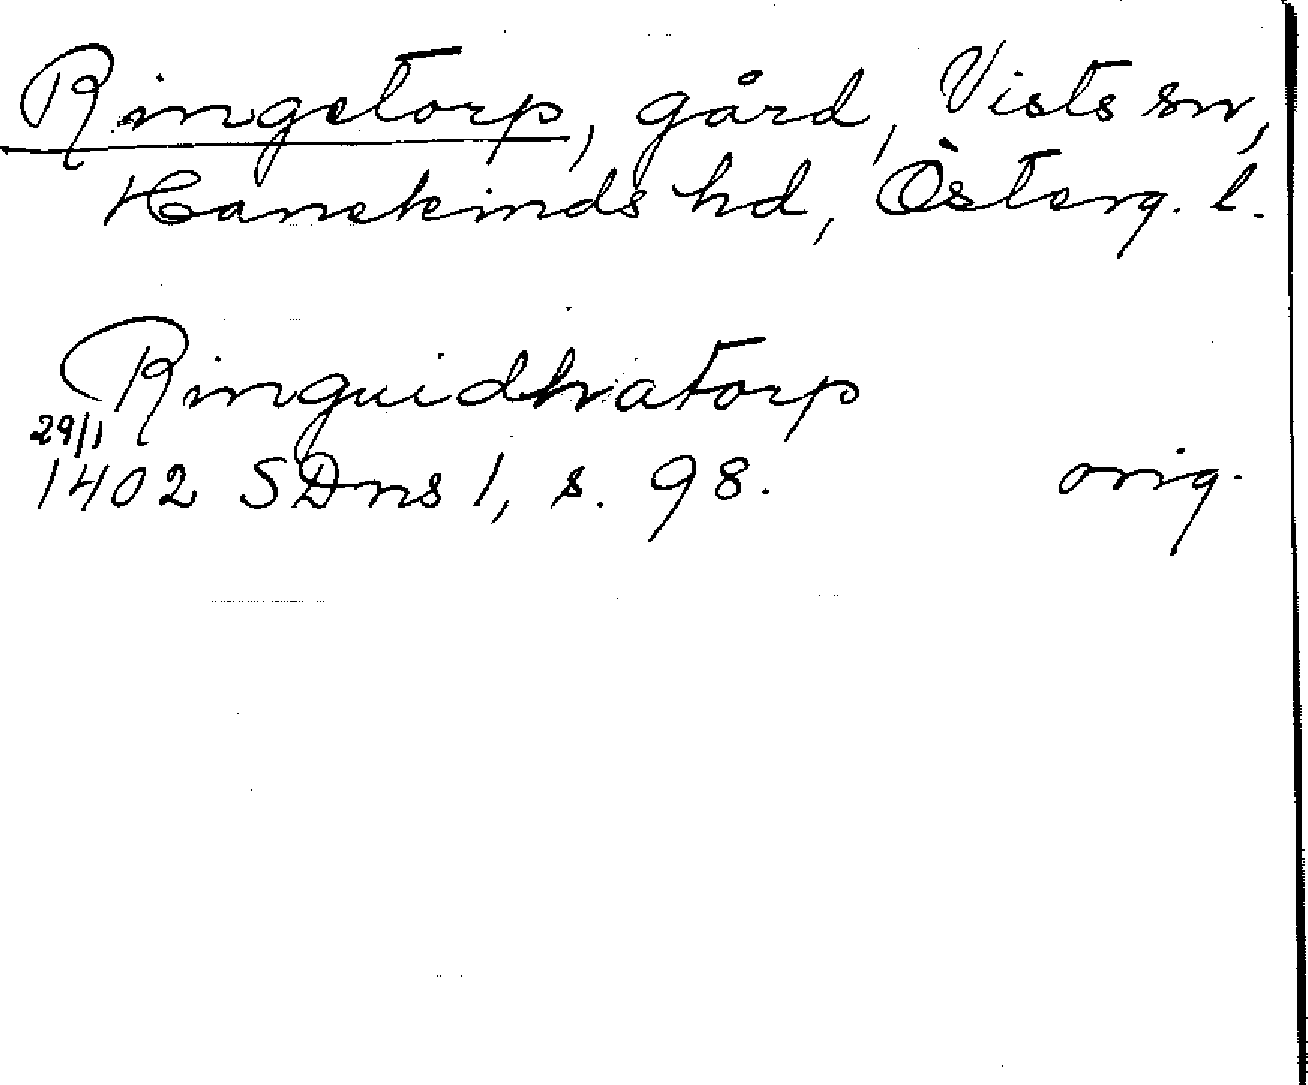 Ringetorp, gård, Vists sn,
Hanekinds hd, Österg. l.
Ringuidhatorp
29/1
1402 SDns 1, s. 98. orig.